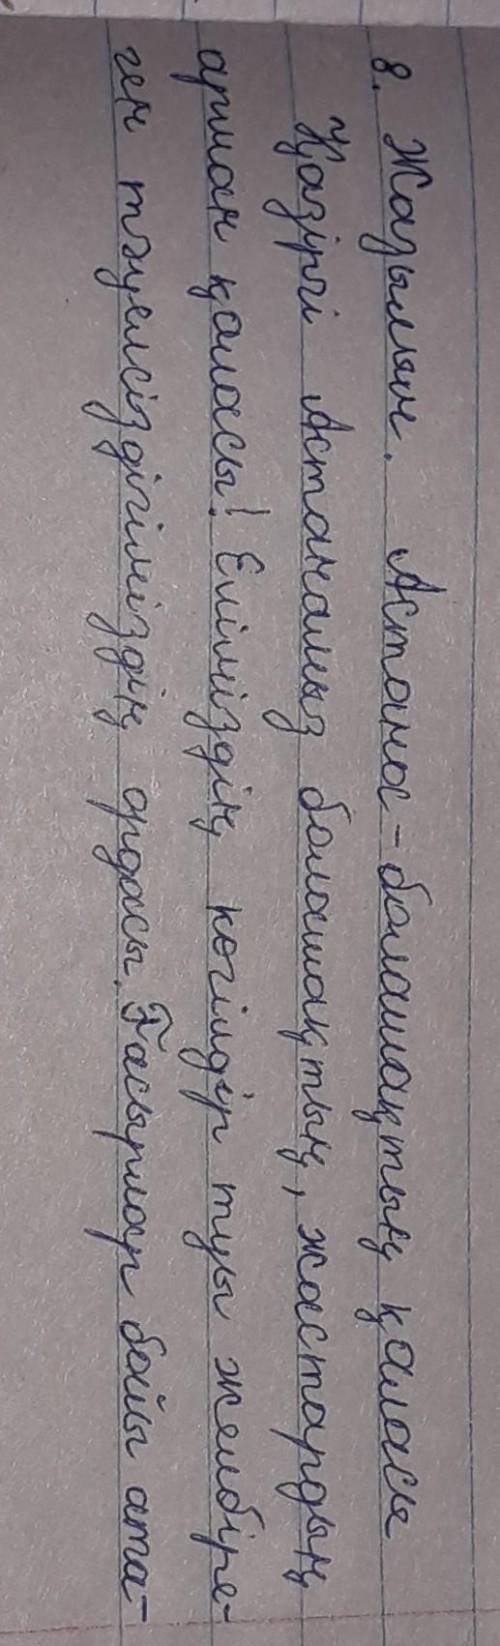 8. Жазылым. Астана - болашақтың қаласы
Қазіргі Астанамыз болашақтың, жастардың
арман қаласы! Еліміздің көгілдір туы желбіре-
ген тәуелсіздігіміздің ордасы. Ғасырлар бойы ата-